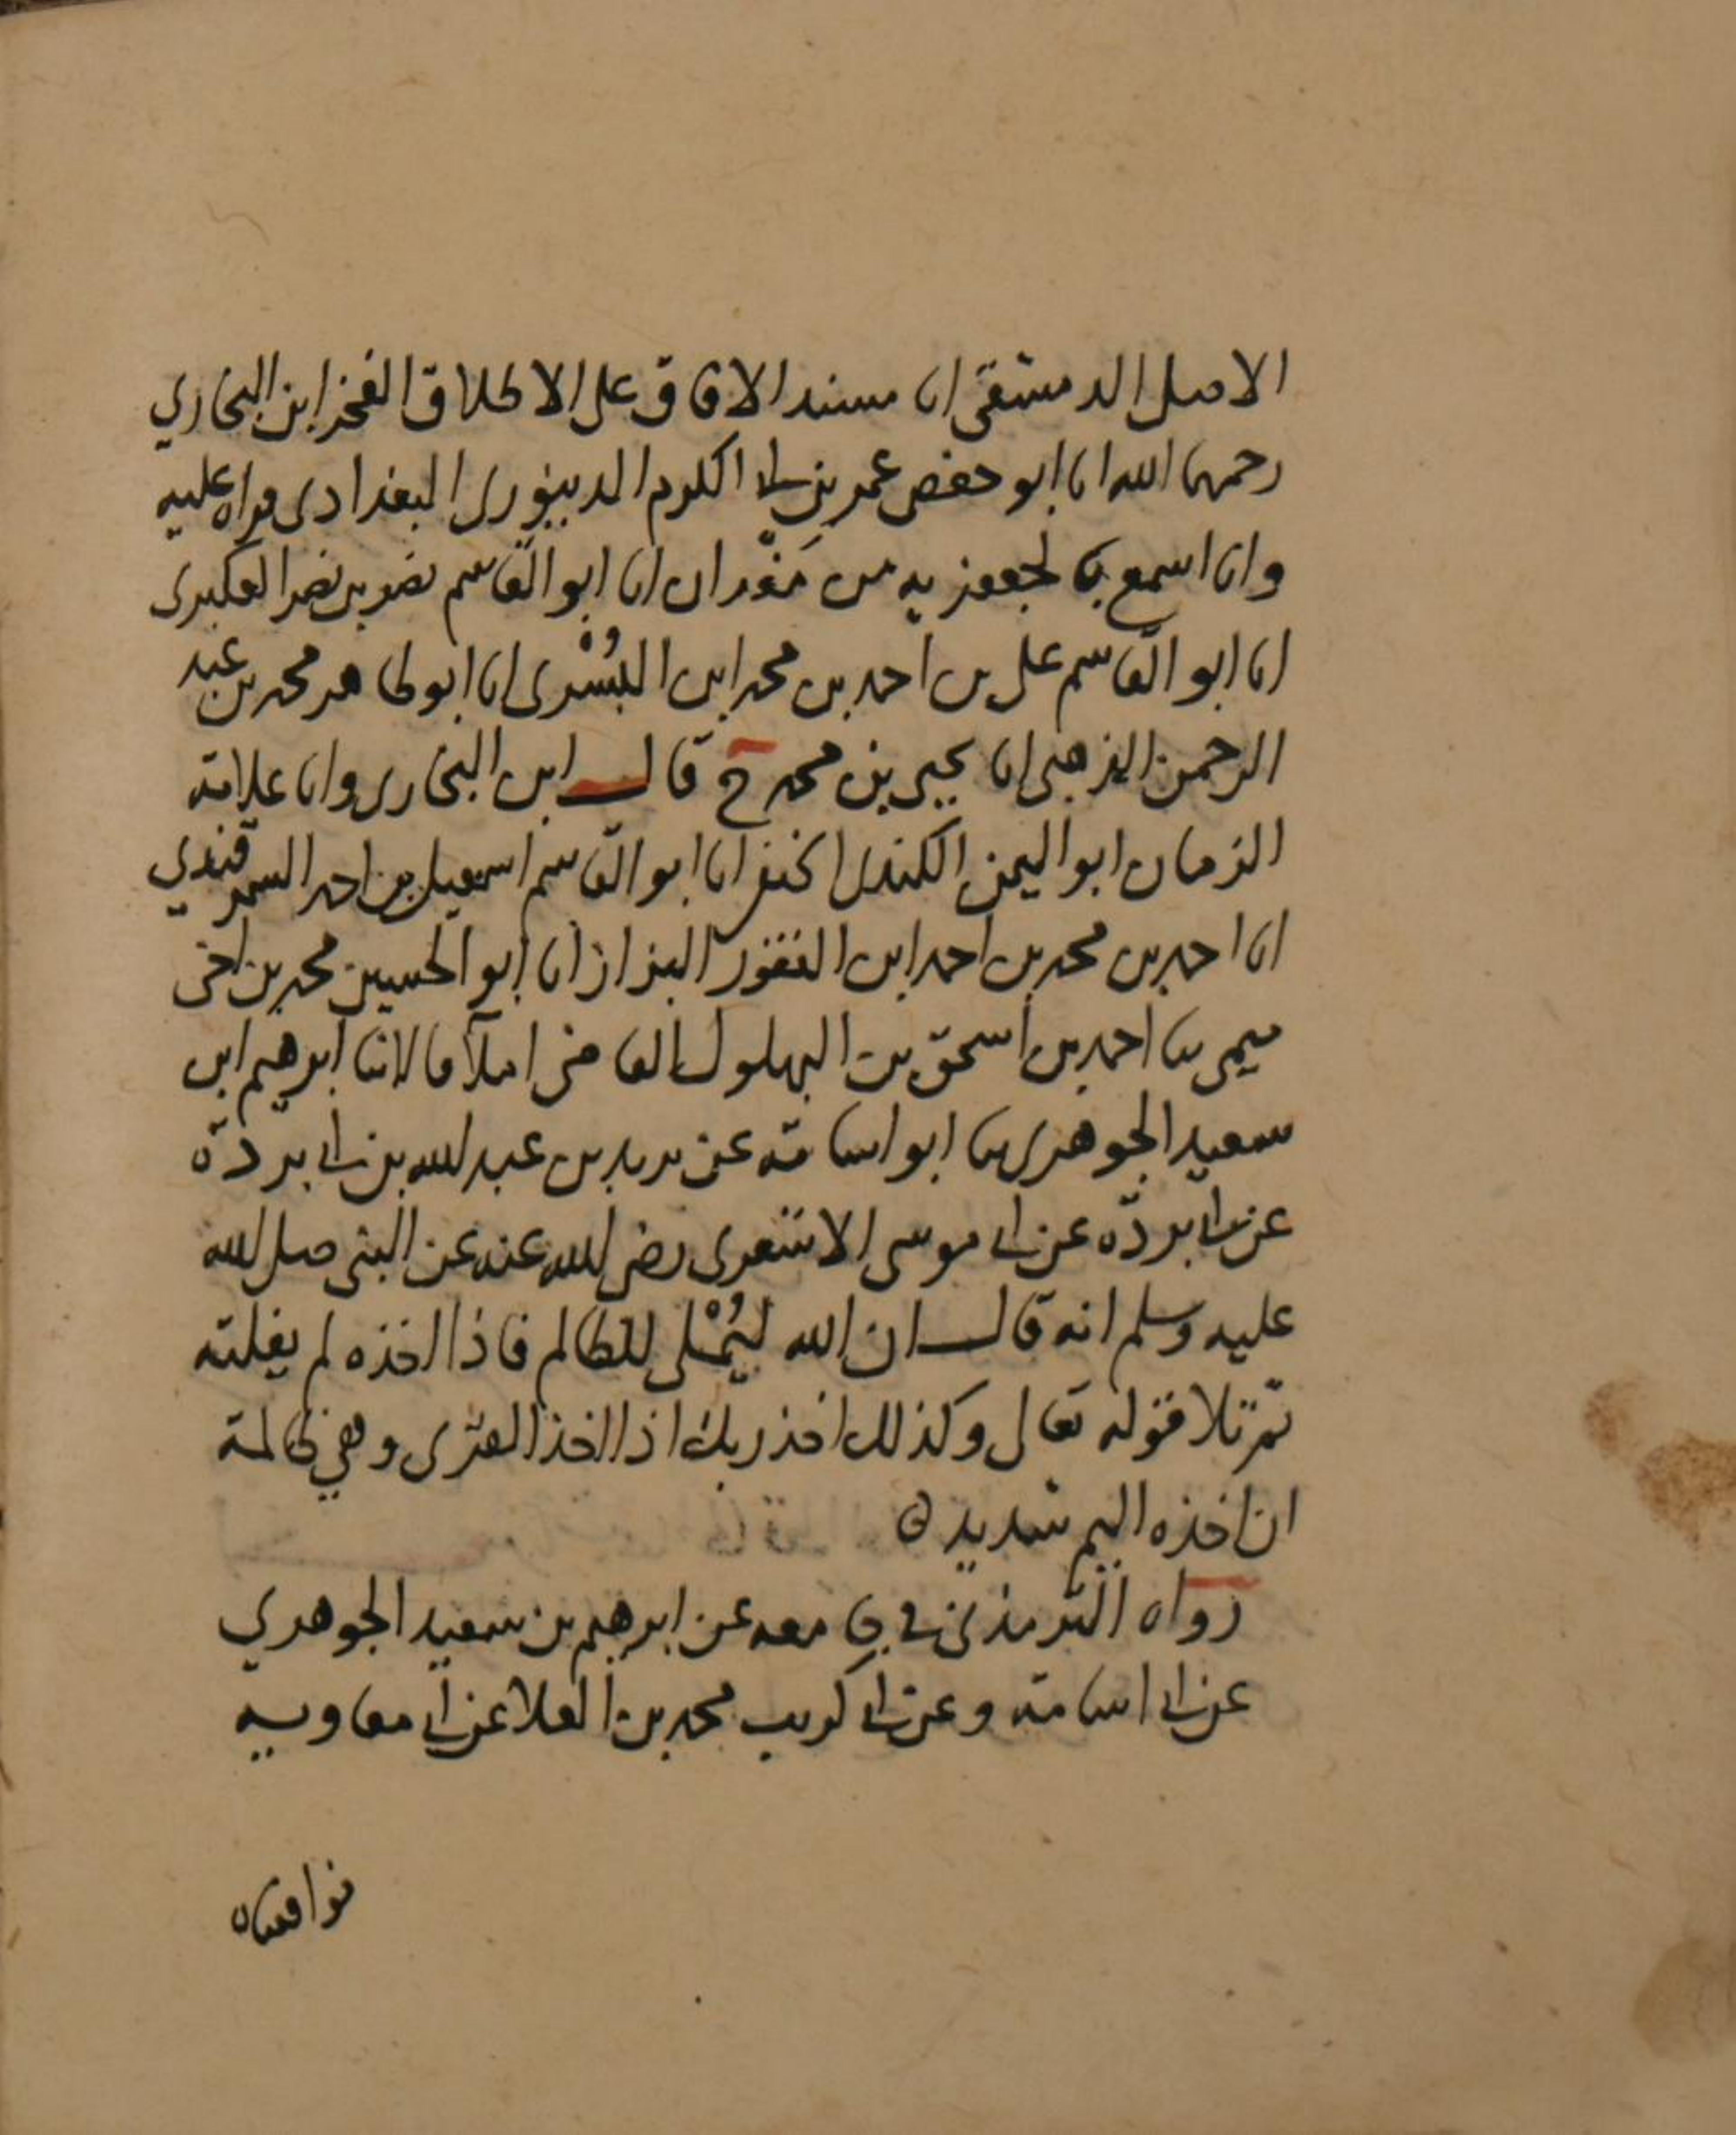 الاصل الدمشقي انا مسند الافاق على الاطلاق الفخر ابن البخاري
رحمهما الله انا ابو حفص عمر بن ابي الكرم الدينوري البغدادي قراه عليه
وانا اسمع بالجعفريه من بَغْدان انا ابو القاسم نصر بن نصر العكبري
انا ابو القاسم علي بن احمد بن محمد ابن البُسْري انا ابو طاهر محمد بن عبد
الرحمن الذهبي انا يحيي بن محمد ح قال ابن البخاري وانا علامة
الزمان ابو اليمن الكندي الحنفي انا ابو القاسم اسمعيل بن احمد السمرقندي
انا احمد بن محمد بن احمد ابن النقور البزاز انا ابو الحسين محمد بن اخي
ميمي ثنا احمد بن اسحق بن البهلول القاضي املآ قالا ثنا ابرهيم ابن
سعيد الجوهري ثنا ابو اسامة عن بريد بن عبد الله بن ابي بردة
عن ابي بردة عن ابي موسى الاشعري رضي الله عنه عن النبي صلى الله
عليه وسلم انه قال ان الله ليُمْلي للظالم فاذا اخذه لم يفلته
ثم تلا قوله تعالى وكذلك اخذ ربك اذا اخذ القرى وهي ظالمة
ان اخذه اليم شديد ه
رواه الترمذي في جامعه عن ابرهيم بن سعيد الجوهري
عن ابي اسامة وعن ابي كريب محمد بن العلا عن ابي معاويه
فوافقناه